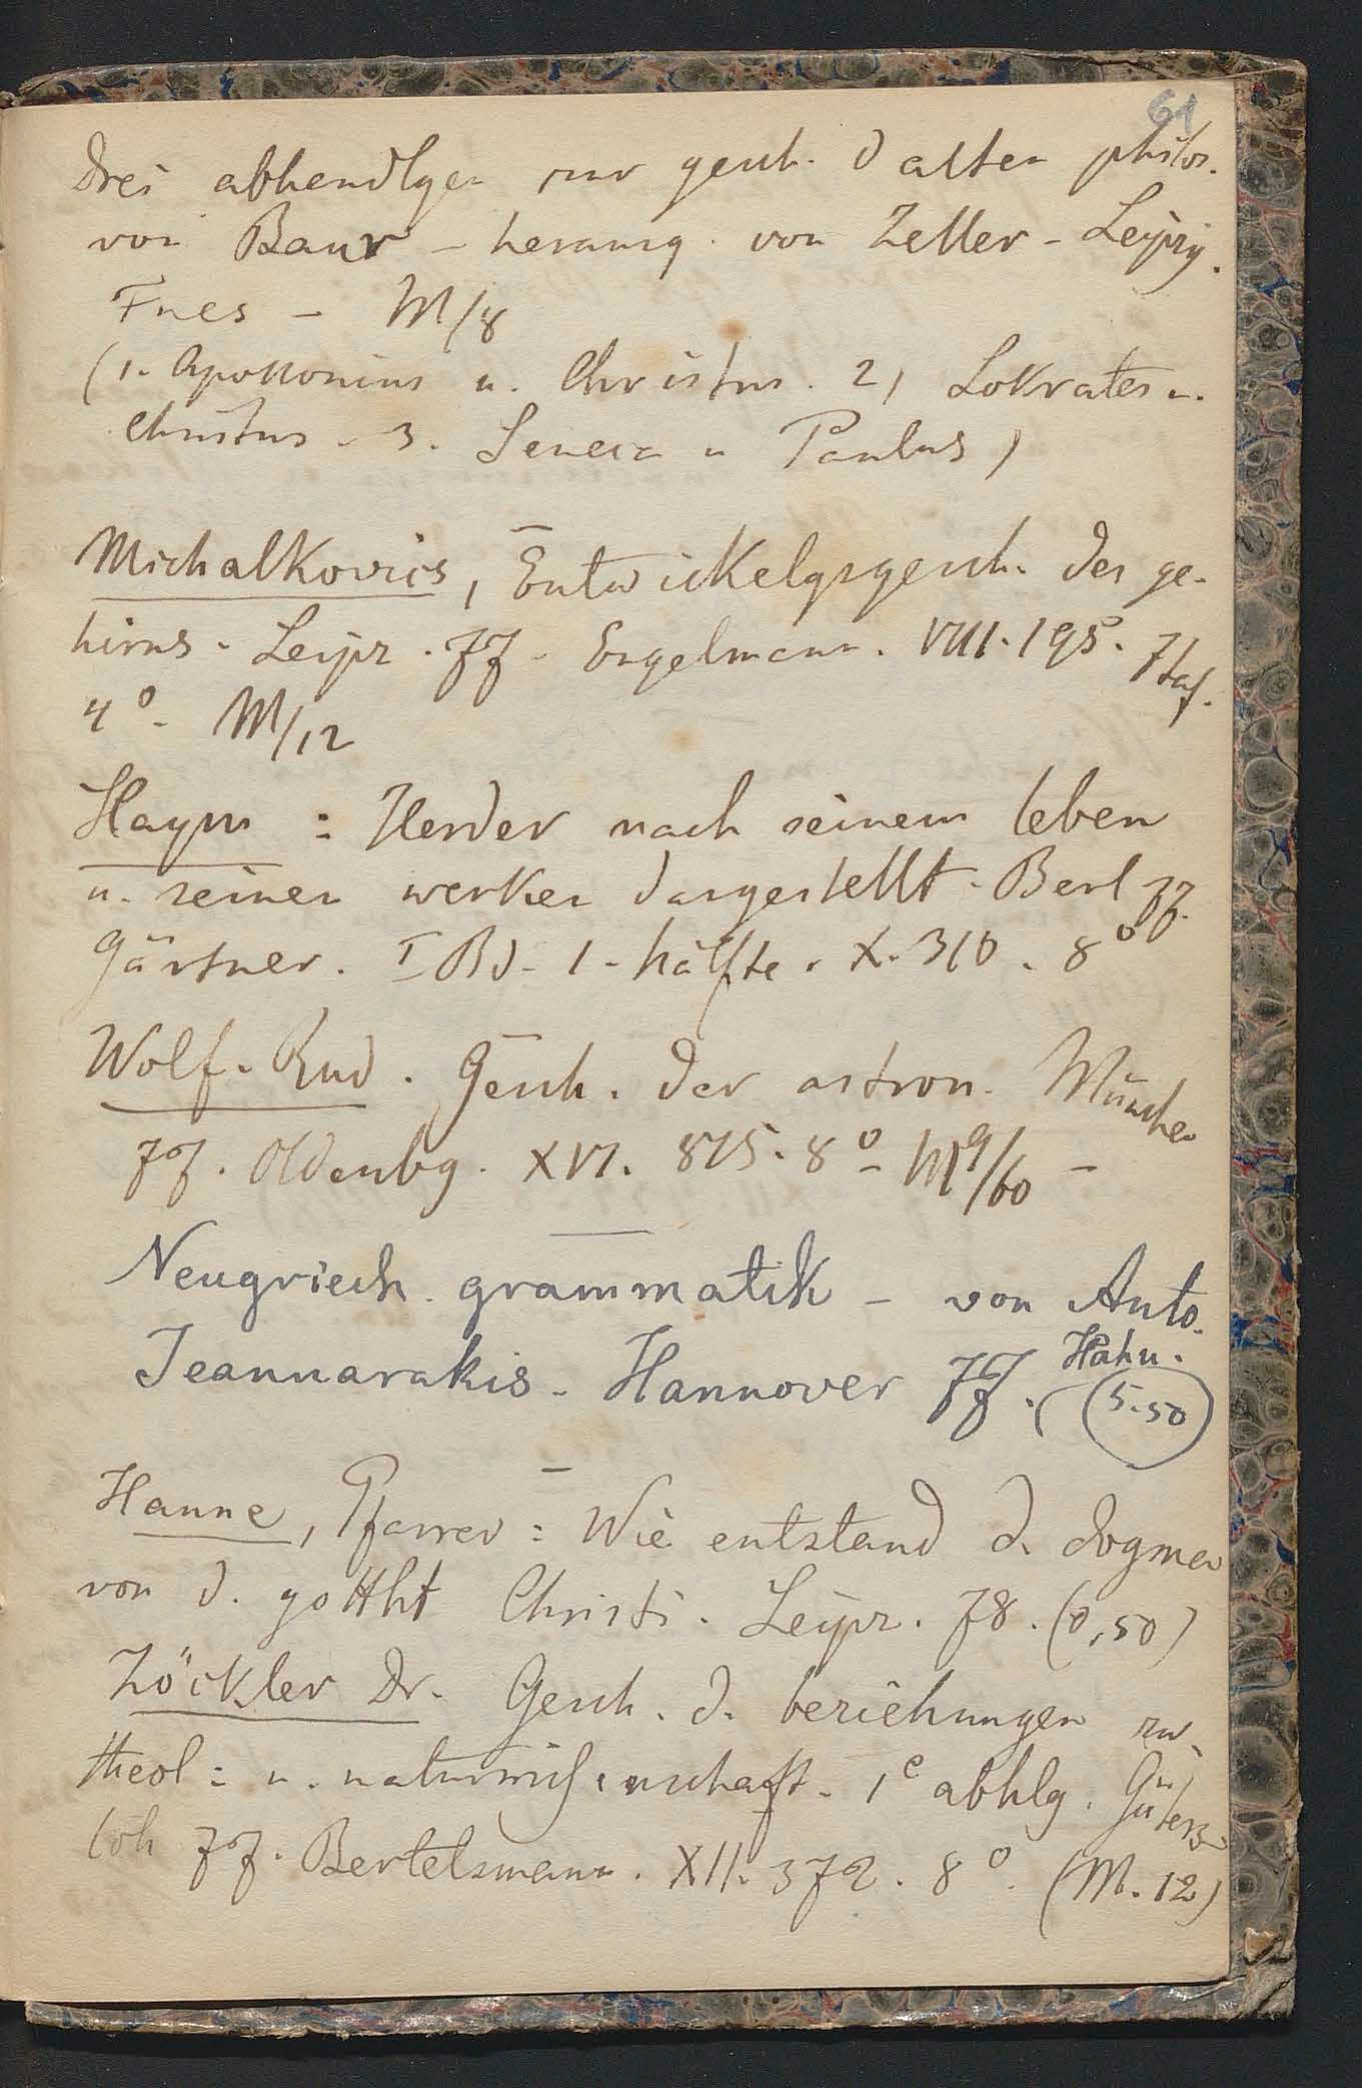 61
Drei abhendlgen zur gesch. d alten philos.
von Baur – herausg. von Zeller – Leipzig.
Fues – M/8
(1. Apollonius u. Christus. 2, Sokrates u.
Christus – 3. Seneca u Paulus)
Michalkovics, Entwickelgsgesch. des ge-
hirns – Leipz. 77 – Engelmann. VIII. 195. 7 taf.
4° – M/12
Haym : Herder nach seinem leben
u. seinen werken dargestellt – Berl 77.
Gärtner. I Bd – 1 – hälfte. X. 310. 8°
Wolf. Rud. Gesch. der astron. München
77. Oldenbg. XVI. 815. 8° – M 9/60 –
Neugriech. grammatik – von Anto.
Jeannarakis – Hannover 77. Hahn.
(5.50)
Hanne, Pfarrer : Wie entstand d. dogmen
von d. gottht Christi. Leipz. 78. (0,50)
Zöckler Dr. Gesch. d. beziehungen zw.
theol : u. naturwissenschaft – 1e abhlg. Güters-
loh 77. Bertelsmann. XII. 372. 8°. (M. 12)